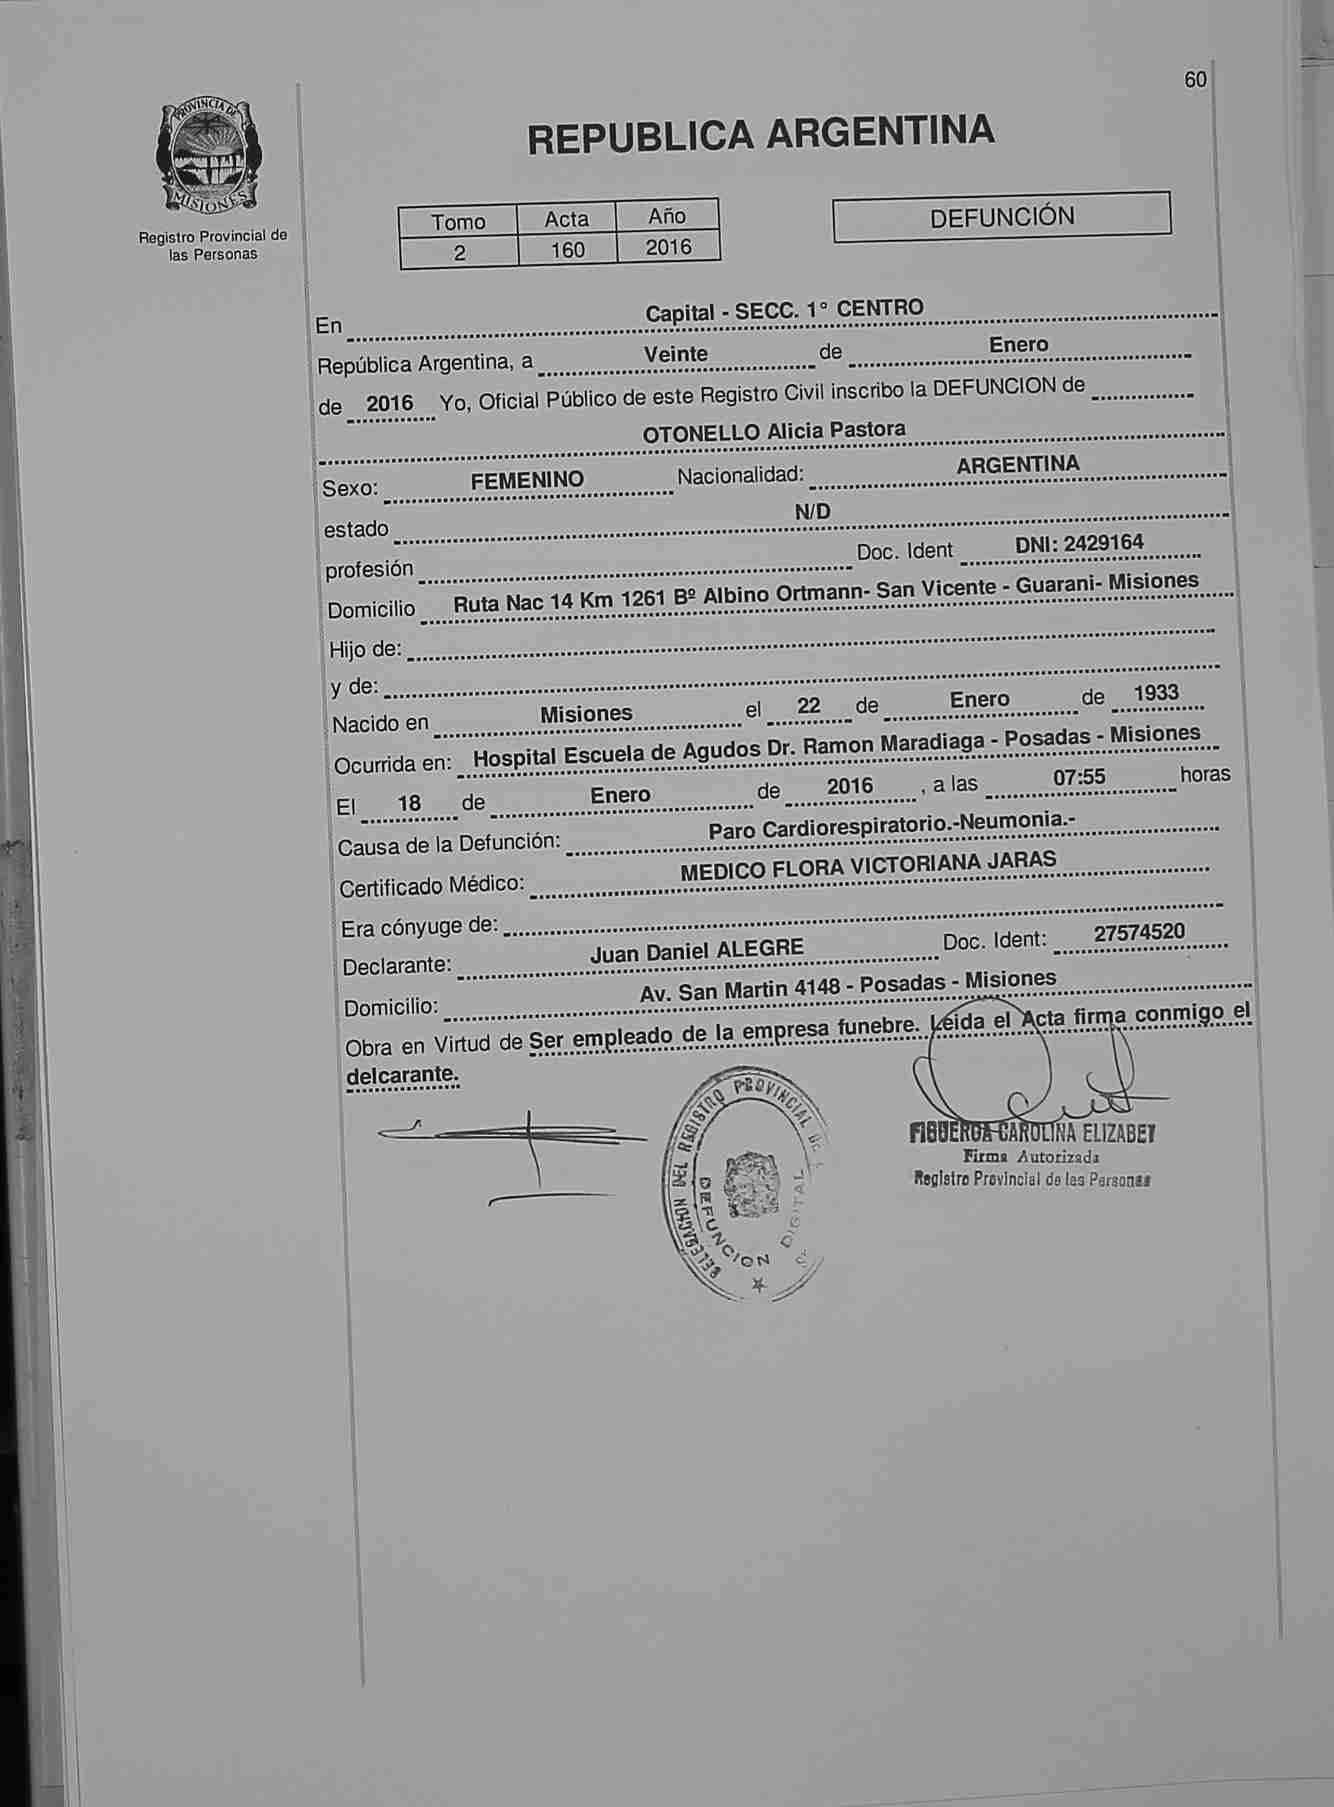 60
PROVINCIA DE
MISIONES
Registro Provincial de
las Personas
REPUBLICA ARGENTINA
Tomo Acta Año
2 160 2016
DEFUNCIÓN
En Capital - SECC. 1° CENTRO
República Argentina, a Veinte de Enero
de 2016 Yo, Oficial Público de este Registro Civil inscribo la DEFUNCION de
OTONELLO Alicia Pastora
Sexo: FEMENINO Nacionalidad: ARGENTINA
estado N/D
profesión Doc. Ident DNI: 2429164
Domicilio Ruta Nac 14 Km 1261 Bº Albino Ortmann- San Vicente - Guarani- Misiones
Hijo de:
y de:
Nacido en Misiones el 22 de Enero de 1933
Ocurrida en: Hospital Escuela de Agudos Dr. Ramon Maradiaga - Posadas - Misiones
El 18 de Enero de 2016 , a las 07:55 horas
Causa de la Defunción: Paro Cardiorespiratorio.-Neumonia.-
Certificado Médico: MEDICO FLORA VICTORIANA JARAS
Era cónyuge de:
Declarante: Juan Daniel ALEGRE Doc. Ident: 27574520
Domicilio: Av. San Martin 4148 - Posadas - Misiones
Obra en Virtud de Ser empleado de la empresa funebre. Leida el Acta firma conmigo el
delcarante.
DELEGACION DEL REGISTRO PROVINCIAL DE
DEFUNCION DIGITAL
FIGUEROA CAROLINA ELIZABET
Firma Autorizada
Registro Provincial de las Personas